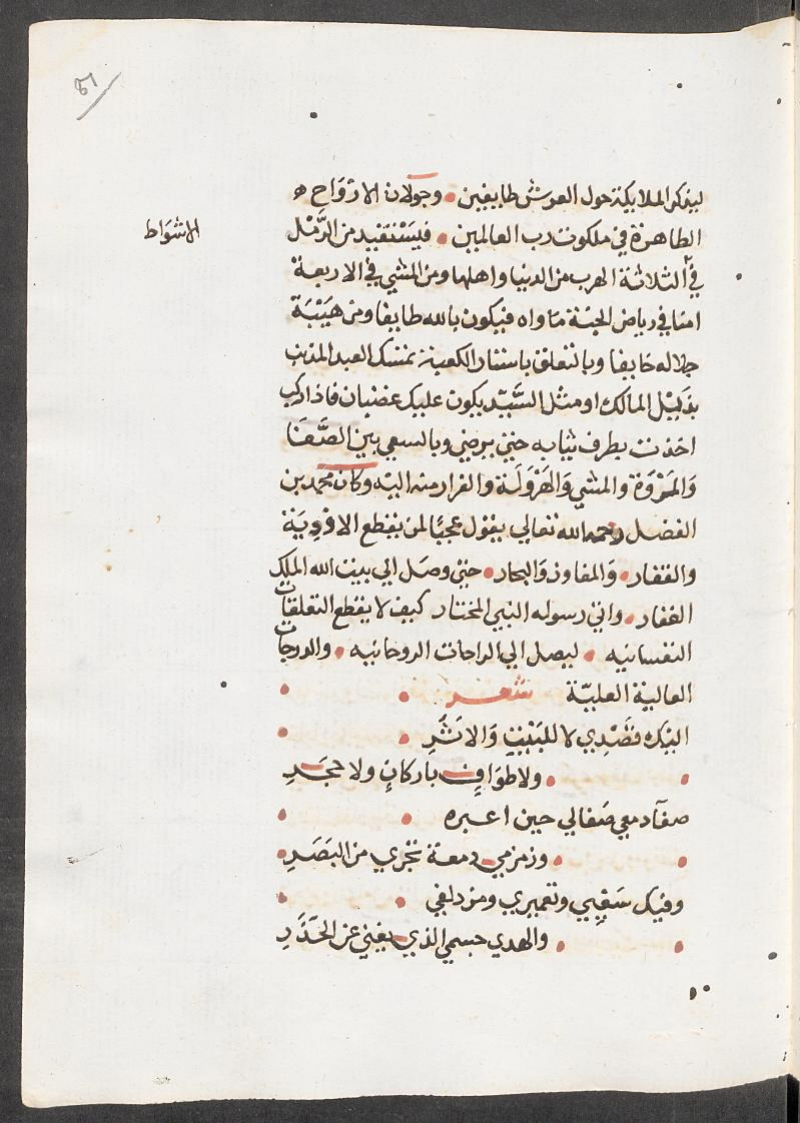 51
ليذكر الملايكة حول العرش طايفين • وجولان الارْوَاح
الطاهرة في ملكوت رب العالمين • فيَسْتفيد من الرَّمْل
الاشوَاط
في الثلاثة الهرب من الدنيا واهلها ومن المشي في الاربعة
امنا في رياض الجنة مَاواه فيكون بالله طايفا ومن هَيْبَة
جلاله خايفا وبالتعلق باستار الكعبة تمسك العبد المذنب
بذَيْل المالك او مثل السَّيّد يكون عليك غضبان فاذا ركب
اخذت بطرف ثيابه حتي يرضي وبالسعي بين الصَّفَا
وَالمَرْوَة والمشي وَالهَرْوَلَة والفرار منه اليه وكان محمد بن
الفضل رحمه الله تعالي يقول عجبًا لمن يقطع الاودِيَة
والقفار • وَالمفاوز وَالبحار • حتي وصَل الي بيت الله الملك
الغفار • واتي رسوله النبي المختار كيف لا يقطع التعلقات
النفسانيه • ليصل الي الراحات الروحانيه • والدرجات
العالية العليّة شعر •
اليْك قصْدِي لا للبَيْتِ وَالاثَرِ •
• ولا طوَافِ باركانٍ ولا حجَرِ
صفآدمعي صَفالي حين اعبره •
• وزمزمي دمعة تجري من البَصَرِ •
وفيك سَعْيِي وتعميري ومزدلفي •
• والهدي جسمي الذي يغني عن الجَزَرِ